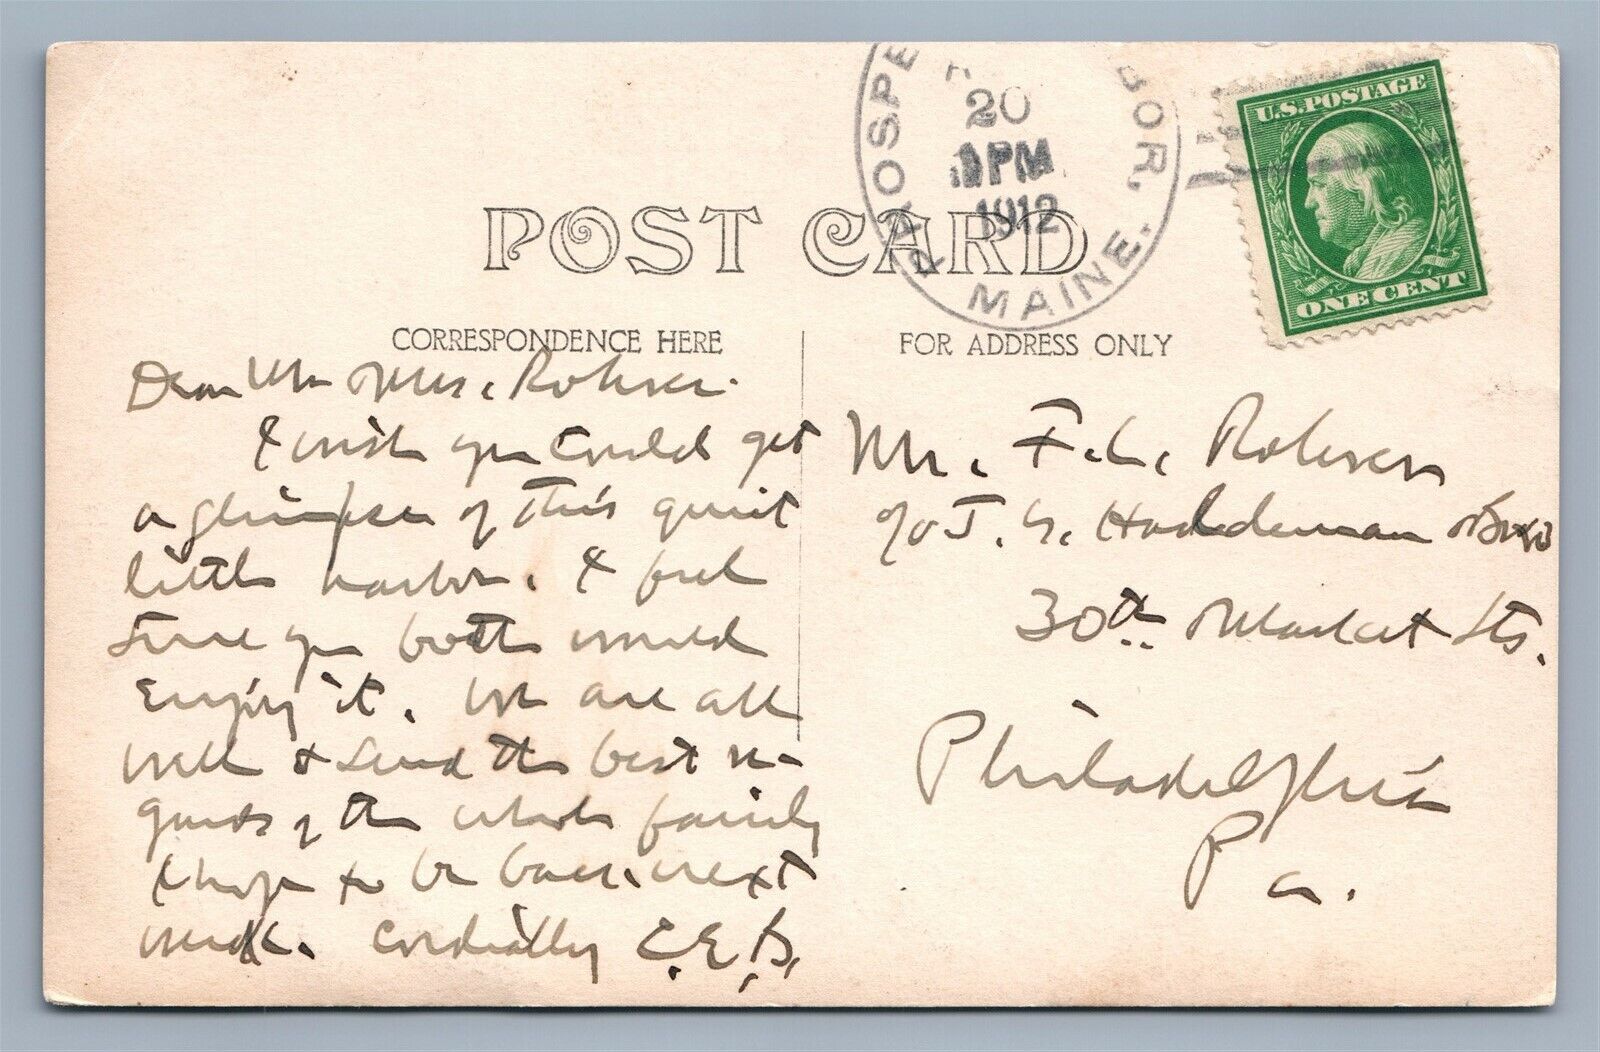 20
PM
1912
MAINE.
U.S. POSTAGE
ONE CENT
POST CARD
CORRESPONDENCE HERE
FOR ADDRESS ONLY
Dear Mr Mrs. Rohrer.
I wish you could get
a glimpse of this quiet
little harbor. I feel
sure you both would
enjoy it. We are all
well & send the best re-
gards of the whole family
I hope to be back next
week. Cordially C.E.B.
Mr. F. C. Rohrer
c/o J. G. Haldeman & Bro
30th Market Sts.
Philadelphia
Pa.